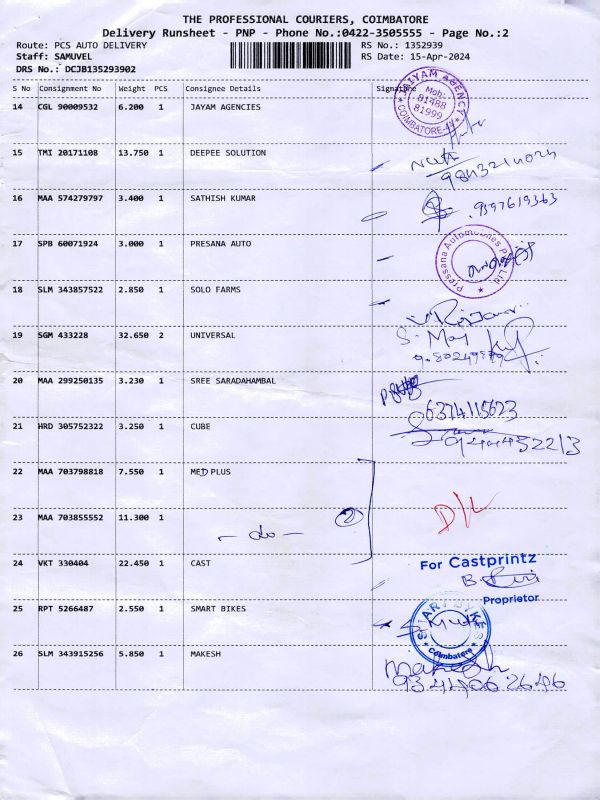 THE PROFESSIONAL COURIERS, COIMBATORE
Delivery Runsheet - PNP - Phone No.:0422-3505555 - Page No.:2
Route: PCS AUTO DELIVERY RS No.: 1352939
Staff: SAMUVEL RS Date: 15-Apr-2024
DRS No.: DCJB135293902
S No Consignment No Weight PCS Consignee Details Signature
14 CGL 90009532 6.200 1 JAYAM AGENCIES
JAIYAM AGENCY
Mob:
81488
81999
COIMBATORE-44
15 TMI 20171108 13.750 1 DEEPEE SOLUTION
16 MAA 574279797 3.400 1 SATHISH KUMAR
9597619363
17 SPB 60071924 3.000 1 PRESANA AUTO
Pressana Automobiles Pvt Ltd
18 SLM 343857522 2.850 1 SOLO FARMS
19 SGM 433228 32.650 2 UNIVERSAL
20 MAA 299250135 3.230 1 SREE SARADAHAMBAL
6374115623
21 HRD 305752322 3.250 1 CUBE
22 MAA 703798818 7.550 1 MED PLUS
D/L
23 MAA 703855552 11.300 1
- do - 2
24 VKT 330404 22.450 1 CAST
For Castprintz
Proprietor
25 RPT 5266487 2.550 1 SMART BIKES
Coimbatore
26 SLM 343915256 5.850 1 MAKESH